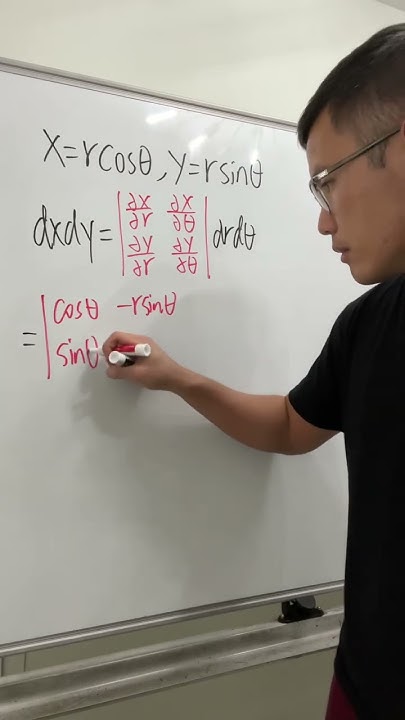 X=rcosθ, Y=rsinθ
dxdy=|∂X/∂r ∂X/∂θ
∂Y/∂r ∂Y/∂θ| drdθ
=|cosθ -rsinθ
sinθ